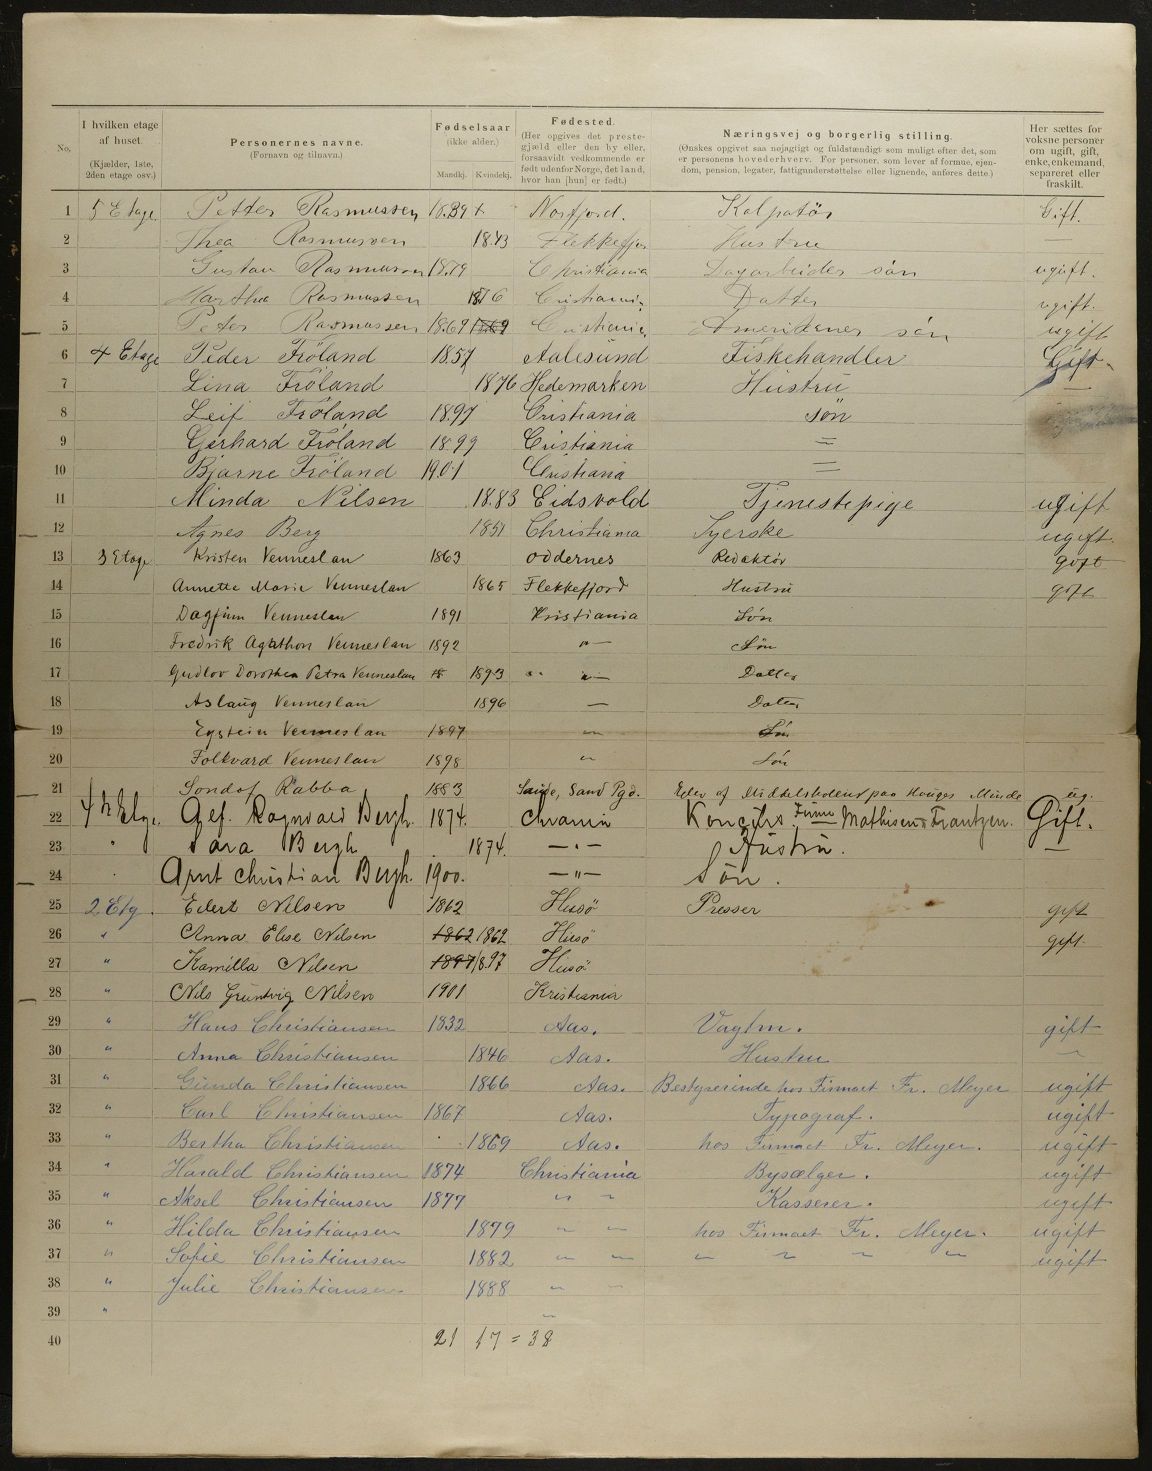 No. I hvilken etage af huset. (Kjælder, 1ste, 2den etage osv.) Personernes navne. (Fornavn og tilnavn.) Fødselsaar (ikke alder.) Mandkj. Kvindekj. Fødested. (Her opgives det prestegjæld eller den by eller, forsaavidt vedkommende er født udenfor Norge, det land, hvor han [hun] er født.) Næringsvej og borgerlig stilling. (Ønskes opgivet saa nøjagtigt og fuldstændigt som muligt efter det, som er personens hovederhverv. For personer, som lever af formue, ejendom, pension, legater, fattigunderstøttelse eller lignende, anføres dette.) Her sættes for voksne personer om ugift, gift, enke, enkemand, separeret eller fraskilt.
1 5 Etage Petter Rasmussen 1839 Kolpatör Gift.
2 Thea Rasmussen 1843 Flekkefjor Hustru —
3 Gustav Rasmussen 1879 Christiania Dagarbeider sön ugift.
4 Martha Rasmussen 1876 Cristiania Datter ugift.
5 Peter Rasmussen 1869 1869 Cristiania sön ugift
6 4 Etage Peder Fröland 1857 Aalesund Fiskehandler Gift
7 Lina Fröland 1876 Hedemarken Hustru —
8 Leif Fröland 1897 Cristiania Sön
9 Gerhard Fröland 1899 Cristiania =
10 Bjarne Fröland 1901 Christiania =
11 Minda Nilsen 1883 Eidsvold Tjenestepige ugift
12 Agnes Berg 1851 Christiania Syerske ugift.
13 3 Etage Kristen Venneslan 1863 Oddernes Redaktör gift
14 Annette Marie Venneslan 1865 Flekkefjord Hustru gift
15 Dagfinn Venneslan 1891 Kristiania Sön
16 Fredrik Agathon Venneslan 1892 —"— Sön
17 Gudlov Dorothea Petra Venneslan 18 1893 " —"— Datter
18 Aslaug Venneslan 1896 — Datter
19 Eystein Venneslan 1897 —"— Sön
20 Folkvard Venneslan 1898 " Sön
21 Sondof Rabba 1883 Sande, Sand Pgd. Elev af Middelskolen paa Hauges Minde ug.
22 4 Etg. Alf. Ragnvald Bergh. 1874. Chrania Firma Mathisen & Frantzen. Gift.
23 " Bergh 1874. —"— Hustru. —
24 " Arnt Christian Bergh. 1900. —"— Sön.
25 2 Etg. Edert Nilsen 1862 Husö Presser gift
26 " Anna Elise Nilsen 1862 1862 Husö gift.
27 " Kamilla Nilsen 1897 1897 Husö
28 " Nils Gruntvig Nilsen 1901 Kristiania
29 " Hans Christiansen 1832 Aas. Vagtm. gift
30 " Anna Christiansen 1846 Aas. Hustru "
31 " Gunda Christiansen 1866 Aas. Bestyrerinde hos Firmaet Fr. Meyer ugift
32 " Carl Christiansen 1867 Aas. Typograf. ugift
33 " Bertha Christiansen 1869 Aas. hos Firmaet Fr. Meyer. ugift
34 " Harald Christiansen 1874 Christiania Bysælger. ugift
35 " Aksel Christiansen 1877 " " Kasserer. ugift
36 " Hilda Christiansen 1879 " " hos Firmaet Fr. Meyer. ugift
37 " Sofie Christiansen 1882 " " " " " " ugift
38 " Julie Christiansen 1888 " "
39 " "
40 21 17 = 38